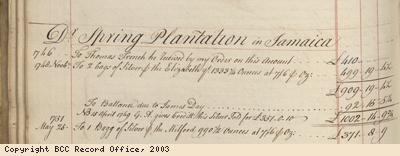 Dr Spring Plantation in Jamaica
1746 To Thomas French he Indived by my Order on this Amount £410
1748 Novr To 2 bags of Silver p the Elizabeth qt 1333 ½ Ounces at 7/6 p Oz: 499 .. 19
£909 .. 19
To Ballance due to James Day 92
NB 15 April 1749 G. A. gives Credit this Silver sold for £351.0.10 £1002
1751 May 25 To 1 Bagg of Silver p the Milford 990 ½ Ounces at 7/6 p Oz: £371 .. 8 .. 9
Copyright BCC Record Office, 2003